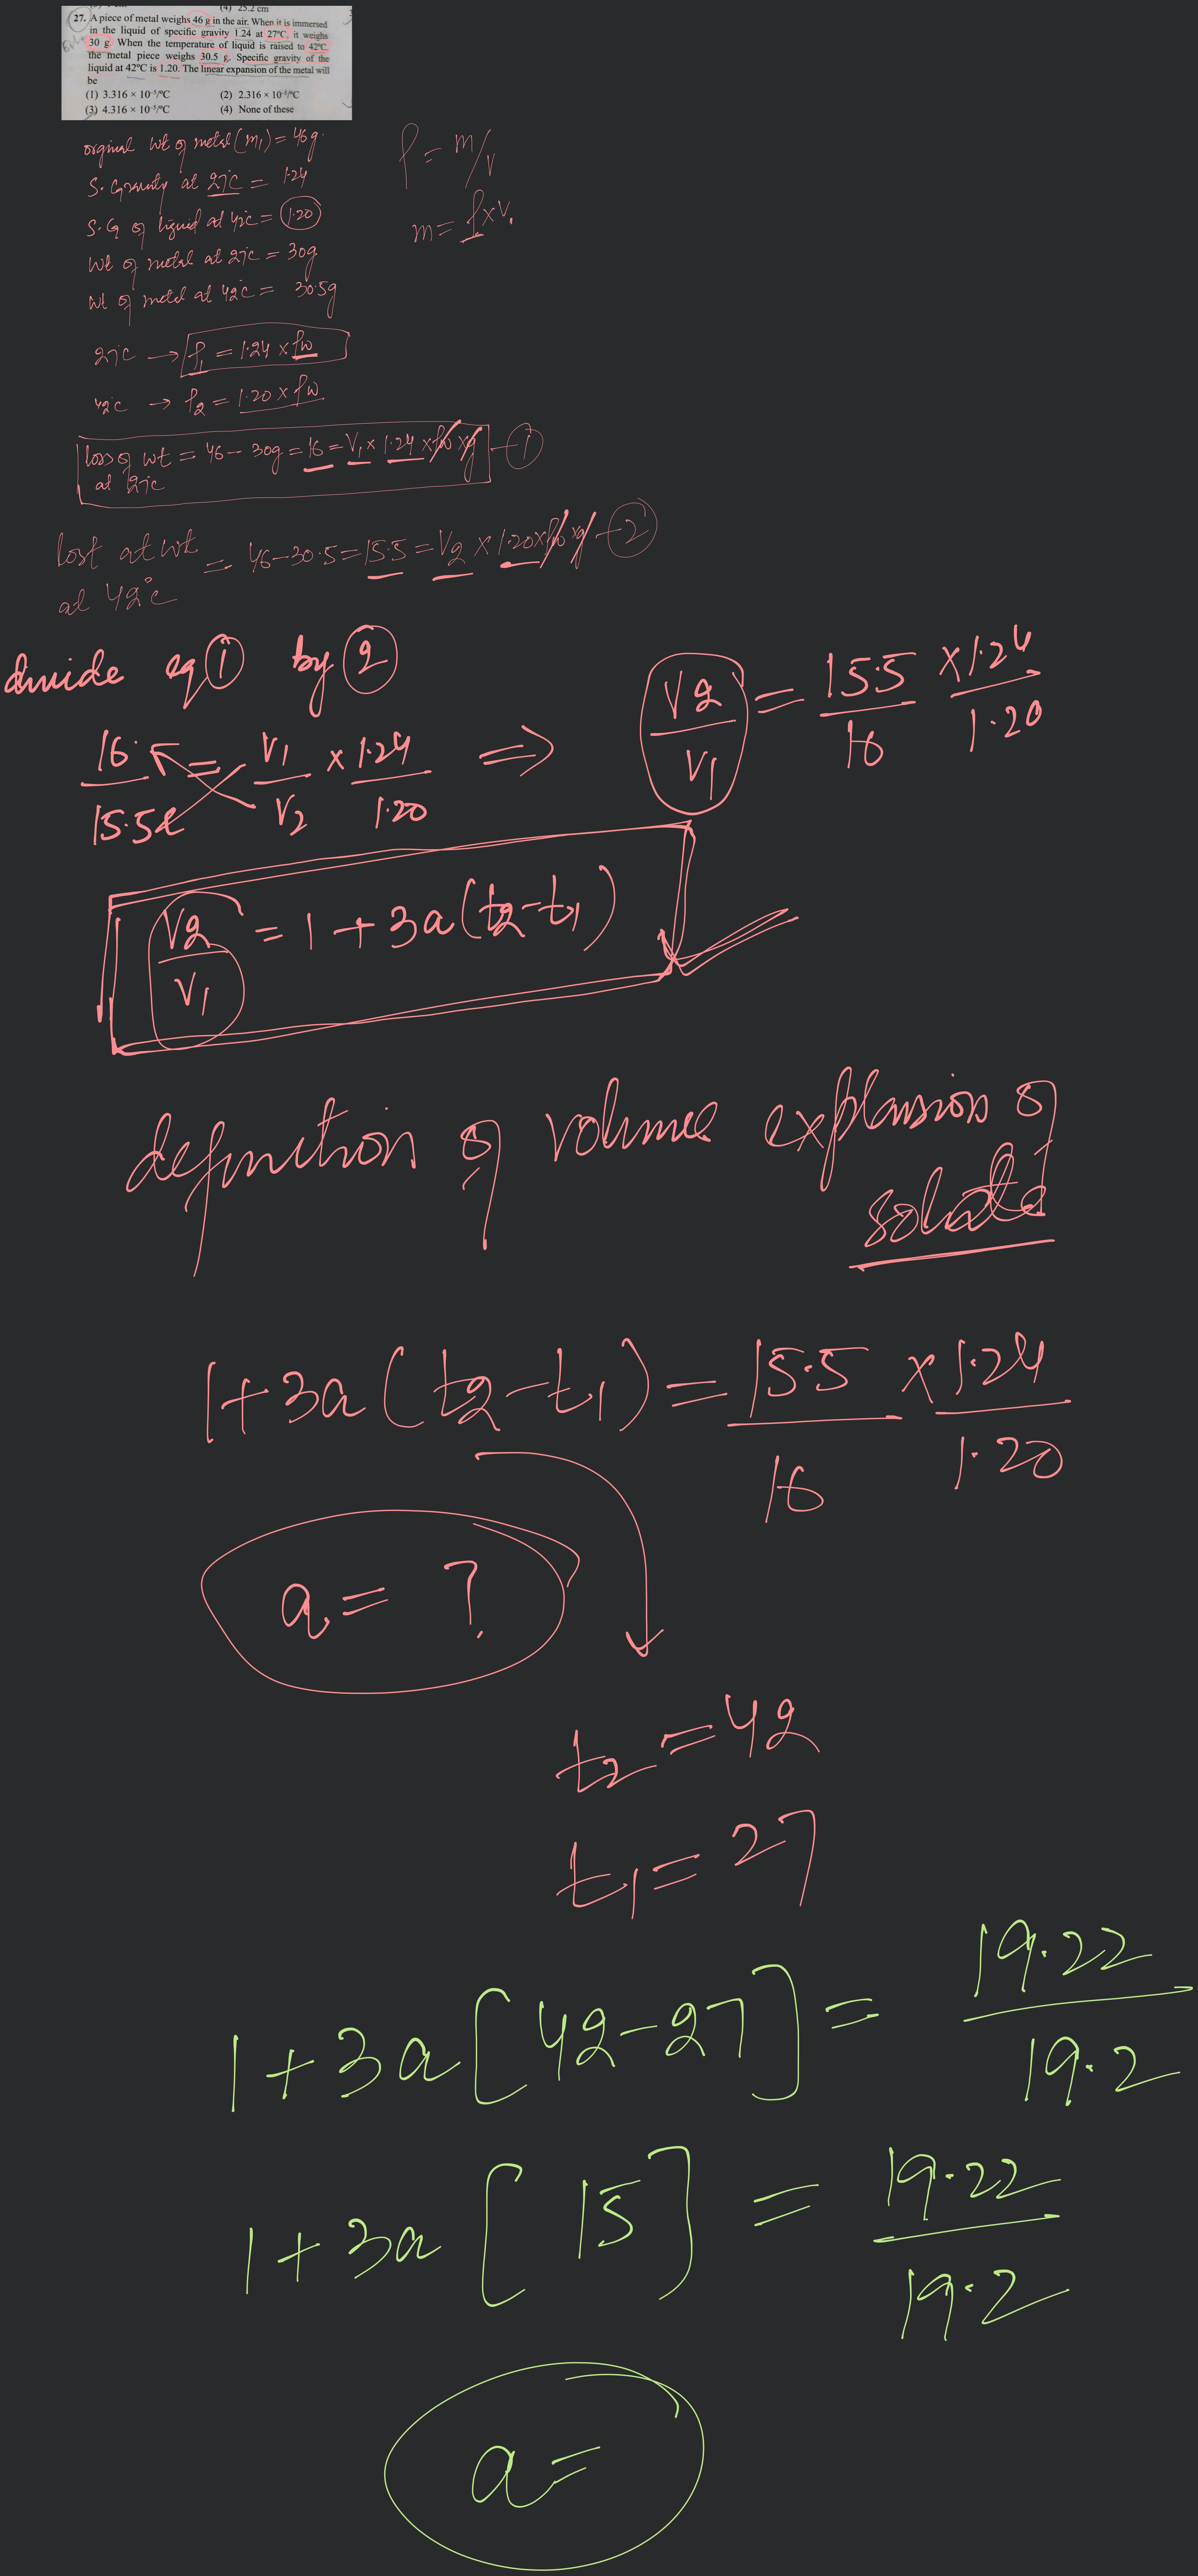 (4) 25.2 cm
27. A piece of metal weighs 46 g in the air. When it is immersed
in the liquid of specific gravity 1.24 at 27°C, it weighs
30 g. When the temperature of liquid is raised to 42°C,
the metal piece weighs 30.5 g. Specific gravity of the
liquid at 42°C is 1.20. The linear expansion of the metal will
be
(1) 3.316 × 10⁻⁵/°C (2) 2.316 × 10⁻⁵/°C
(3) 4.316 × 10⁻⁵/°C (4) None of these
orginal wt of metal (m₁) = 46g.
S. Gravity at 27c = 1.24
S.G of liquid at 42c = 1.20
wt of metal at 27c = 30g
wt of metal at 42c = 30.5g
ρ = m/v
m = ρ×v.
27c → ρ₁ = 1.24 × ρw
42c → ρ₂ = 1.20 × ρw
loss of wt = 46 - 30g = 16 = V₁ × 1.24 × ρw × g - ①
at 27c
lost at wt = 46-30.5 = 15.5 = V₂ × 1.20 × ρw × g - ②
at 42°c
divide eq ① by ②
16 / 15.5 = V₁ / V₂ × 1.24 / 1.20 ⇒ V₂ / V₁ = 15.5 / 16 × 1.24 / 1.20
V₂ / V₁ = 1 + 3a(t₂-t₁)
definition of volume explansion of
1 + 3a (t₂-t₁) = 15.5 / 16 × 1.24 / 1.20
a = ?
t₂ = 42
t₁ = 27
1 + 3a [42-27] = 19.22 / 19.2
1 + 3a [15] = 19.22 / 19.2
a =